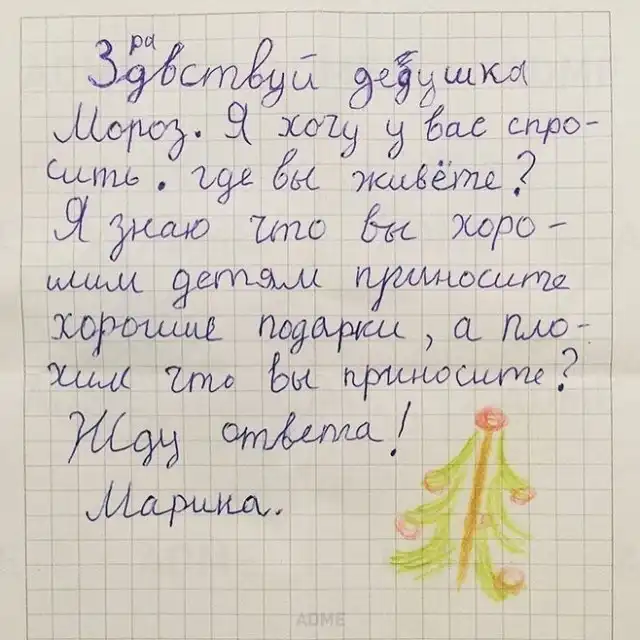 Здравствуй дедушка
Мороз. Я хочу у вас спро-
сить. где вы живёте?
Я знаю что вы хоро-
шим детям приносите
хорошие подарки, а пло-
хим что вы приносите?
Жду ответа!
Марина.
ADME